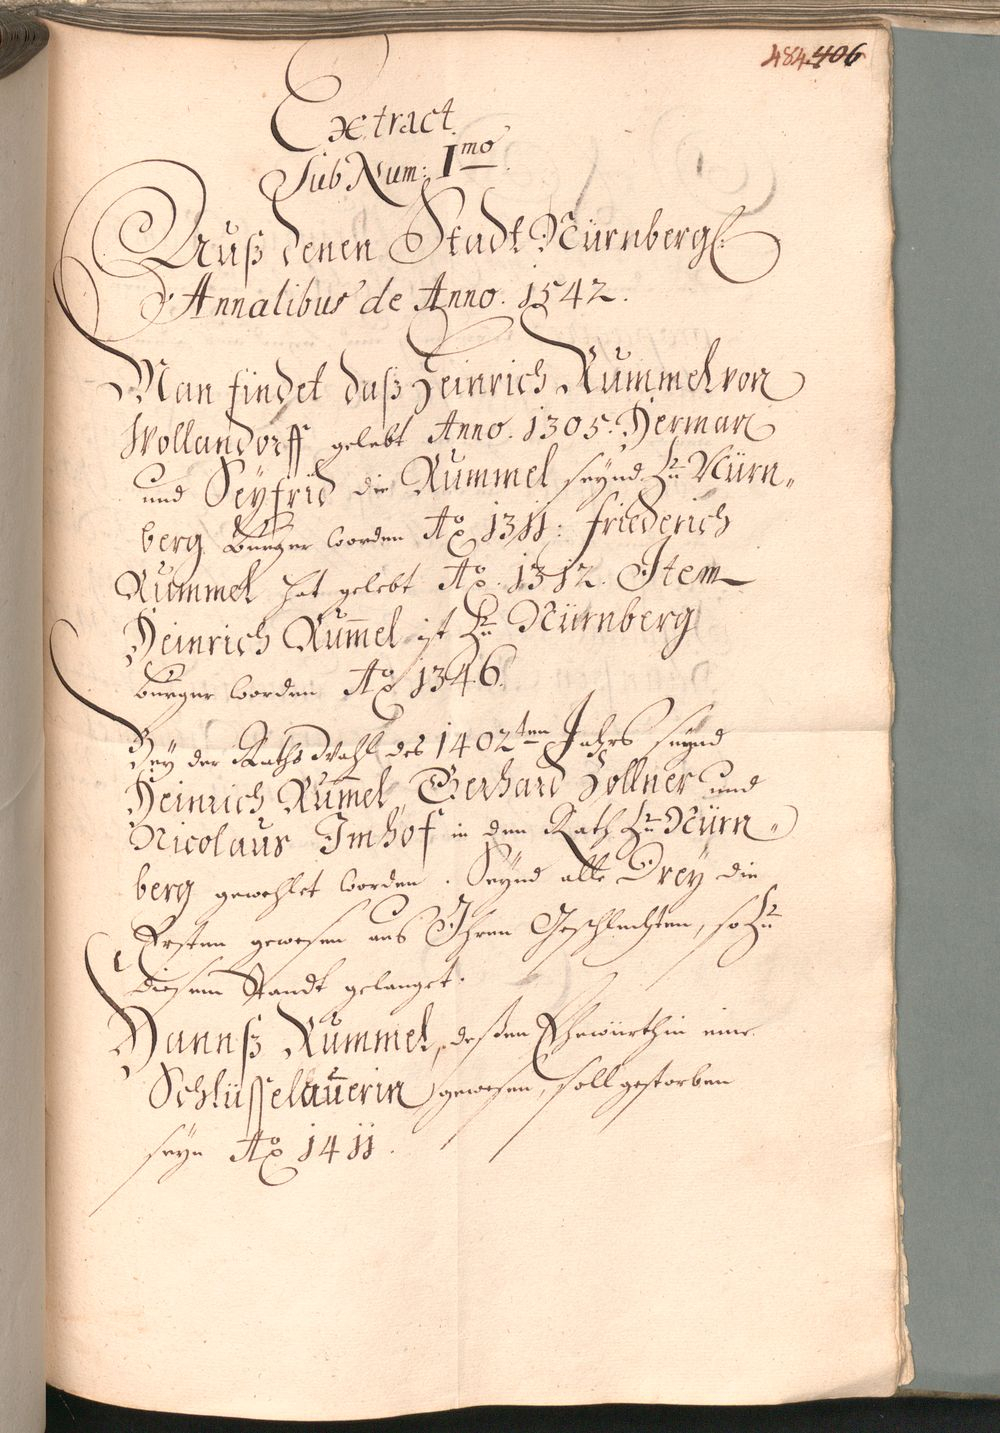 484. 406
Extract
Sub Num: I<sup>mo</sup>
Auß denen Stadt Nürnberg:
Annalibus de Anno. 1542.
Man findet daß Heinrich Rummel von
Wollandorff gelebt Anno. 1305. Herman
und Seyfrid die Rummel seynd zu Nürn„
berg burger worden Aō 1311: friederich
Rummel hat gelebt Aō. 1312. Item
Heinrich Rum̄el ist zu Nürnberg
burger worden Aō 1346.
Bey der Raths Wahl des 1402<sup>ten</sup> Jahrs seynd
Heinrich Rum̄el, Gerhard Zollner und
Nicolaus Imhof in den Rath zu Nürn„
berg gewehlet worden. Seynd alle Drey die
Ersten gewesen aus Ihren Geschlechten, so zu
diesem Standt gelanget.
Hannß Rummel, deßen Ehewürthin eine
Schlüsselauerin gewesen, soll gestorben
seyn Aō 1411.